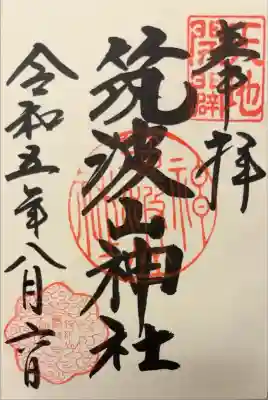 奉拝
天地
開闢
筑波山神社
令和五年八月六日